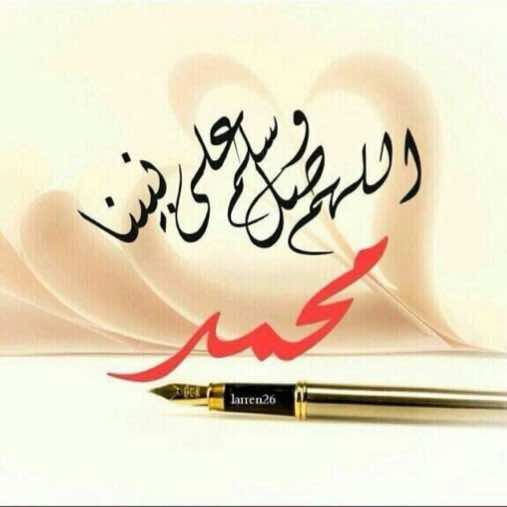 اللهم صل وسلم على نبينا
محمد
larren26